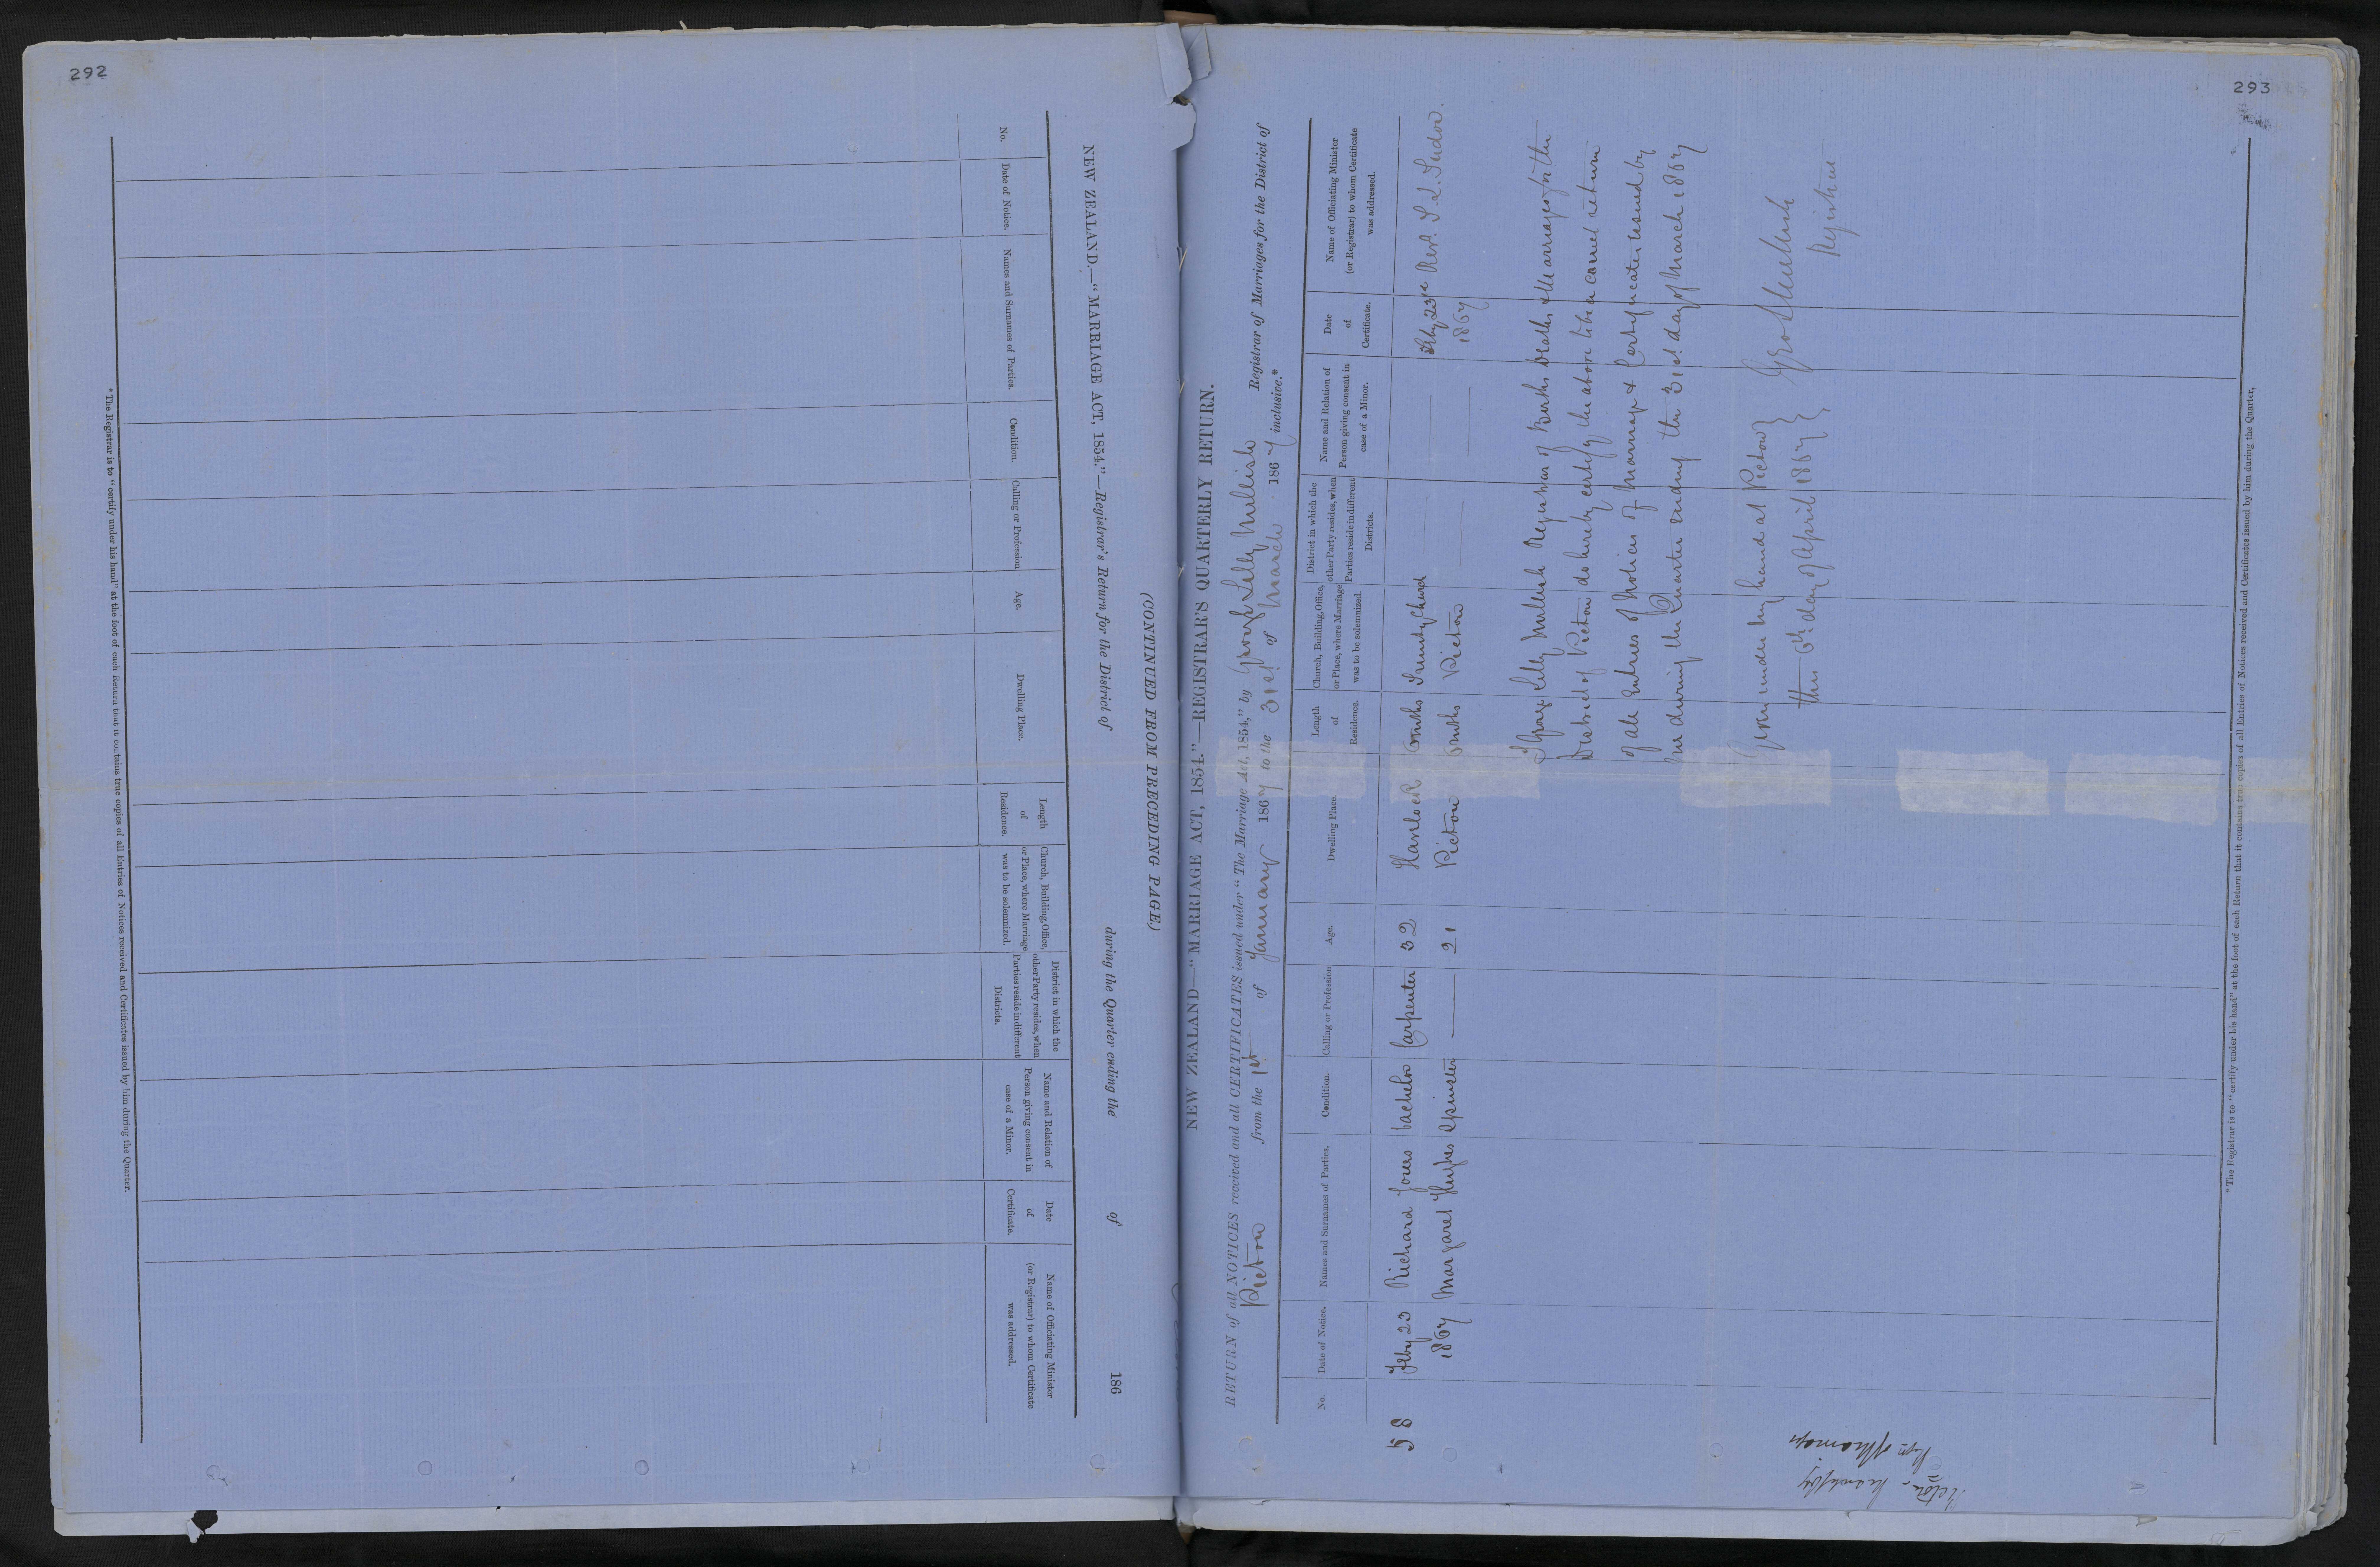 292
(CONTINUED FROM PRECEDING PAGE.)
NEW ZEALAND.—"MARRIAGE ACT, 1854."—Registrar's Return for the District of during the Quarter ending the of 186
No.
Date of Notice.
Names and Surnames of Parties.
Condition.
Calling or Profession
Age.
Dwelling Place.
Length
of
Residence.
Church, Building, Office,
or Place, where Marriage
was to be solemnized.
District in which the
other Party resides, when
Parties reside in different
Districts.
Name and Relation of
Person giving consent in
case of a Minor.
Date
of
Certificate.
Name of Officiating Minister
(or Registrar) to whom Certificate
was addressed.
* The Registrar is to "certify under his hand" at the foot of each Return that it contains true copies of all Entries of Notices received and Certificates issued by him during the Quarter.
293
NEW ZEALAND—"MARRIAGE ACT, 1854."—REGISTRAR'S QUARTERLY RETURN.
RETURN of all NOTICES received and all CERTIFICATES issued under "The Marriage Act, 1854," by George Lilly Mellish Registrar of Marriages for the District of
Picton from the 1st of January 1867 to the 31st of March 1867 inclusive.*
No.
Date of Notice.
Names and Surnames of Parties.
Condition.
Calling or Profession
Age.
Dwelling Place.
Length
of
Residence.
Church, Building, Office,
or Place, where Marriage
was to be solemnized.
District in which the
other Party resides, when
Parties reside in different
Districts.
Name and Relation of
Person giving consent in
case of a Minor.
Date
of
Certificate.
Name of Officiating Minister
(or Registrar) to whom Certificate
was addressed.
58 Feby 23 Richard Jones bachelor Carpenter 32 Havelock months Trinity Church Feby 23rd Revd.
1867 Margaret Hughes Spinster 21 Picton months Picton 1867
I George Lilly Mellish Registrar of Births Deaths & Marriages for the
District of Picton do hereby certify the above to be a correct return
of all Entries of Notices of Marriage & Certificates issued by
me during the Quarter ending the 31st day of March 1867
Given under my hand at Picton
this 6th day of April 1867
Geo L Mellish
Registrar
Picton - March /67
Regr of Marriages
* The Registrar is to "certify under his hand" at the foot of each Return that it contains true copies of all Entries of Notices received and Certificates issued by him during the Quarter.